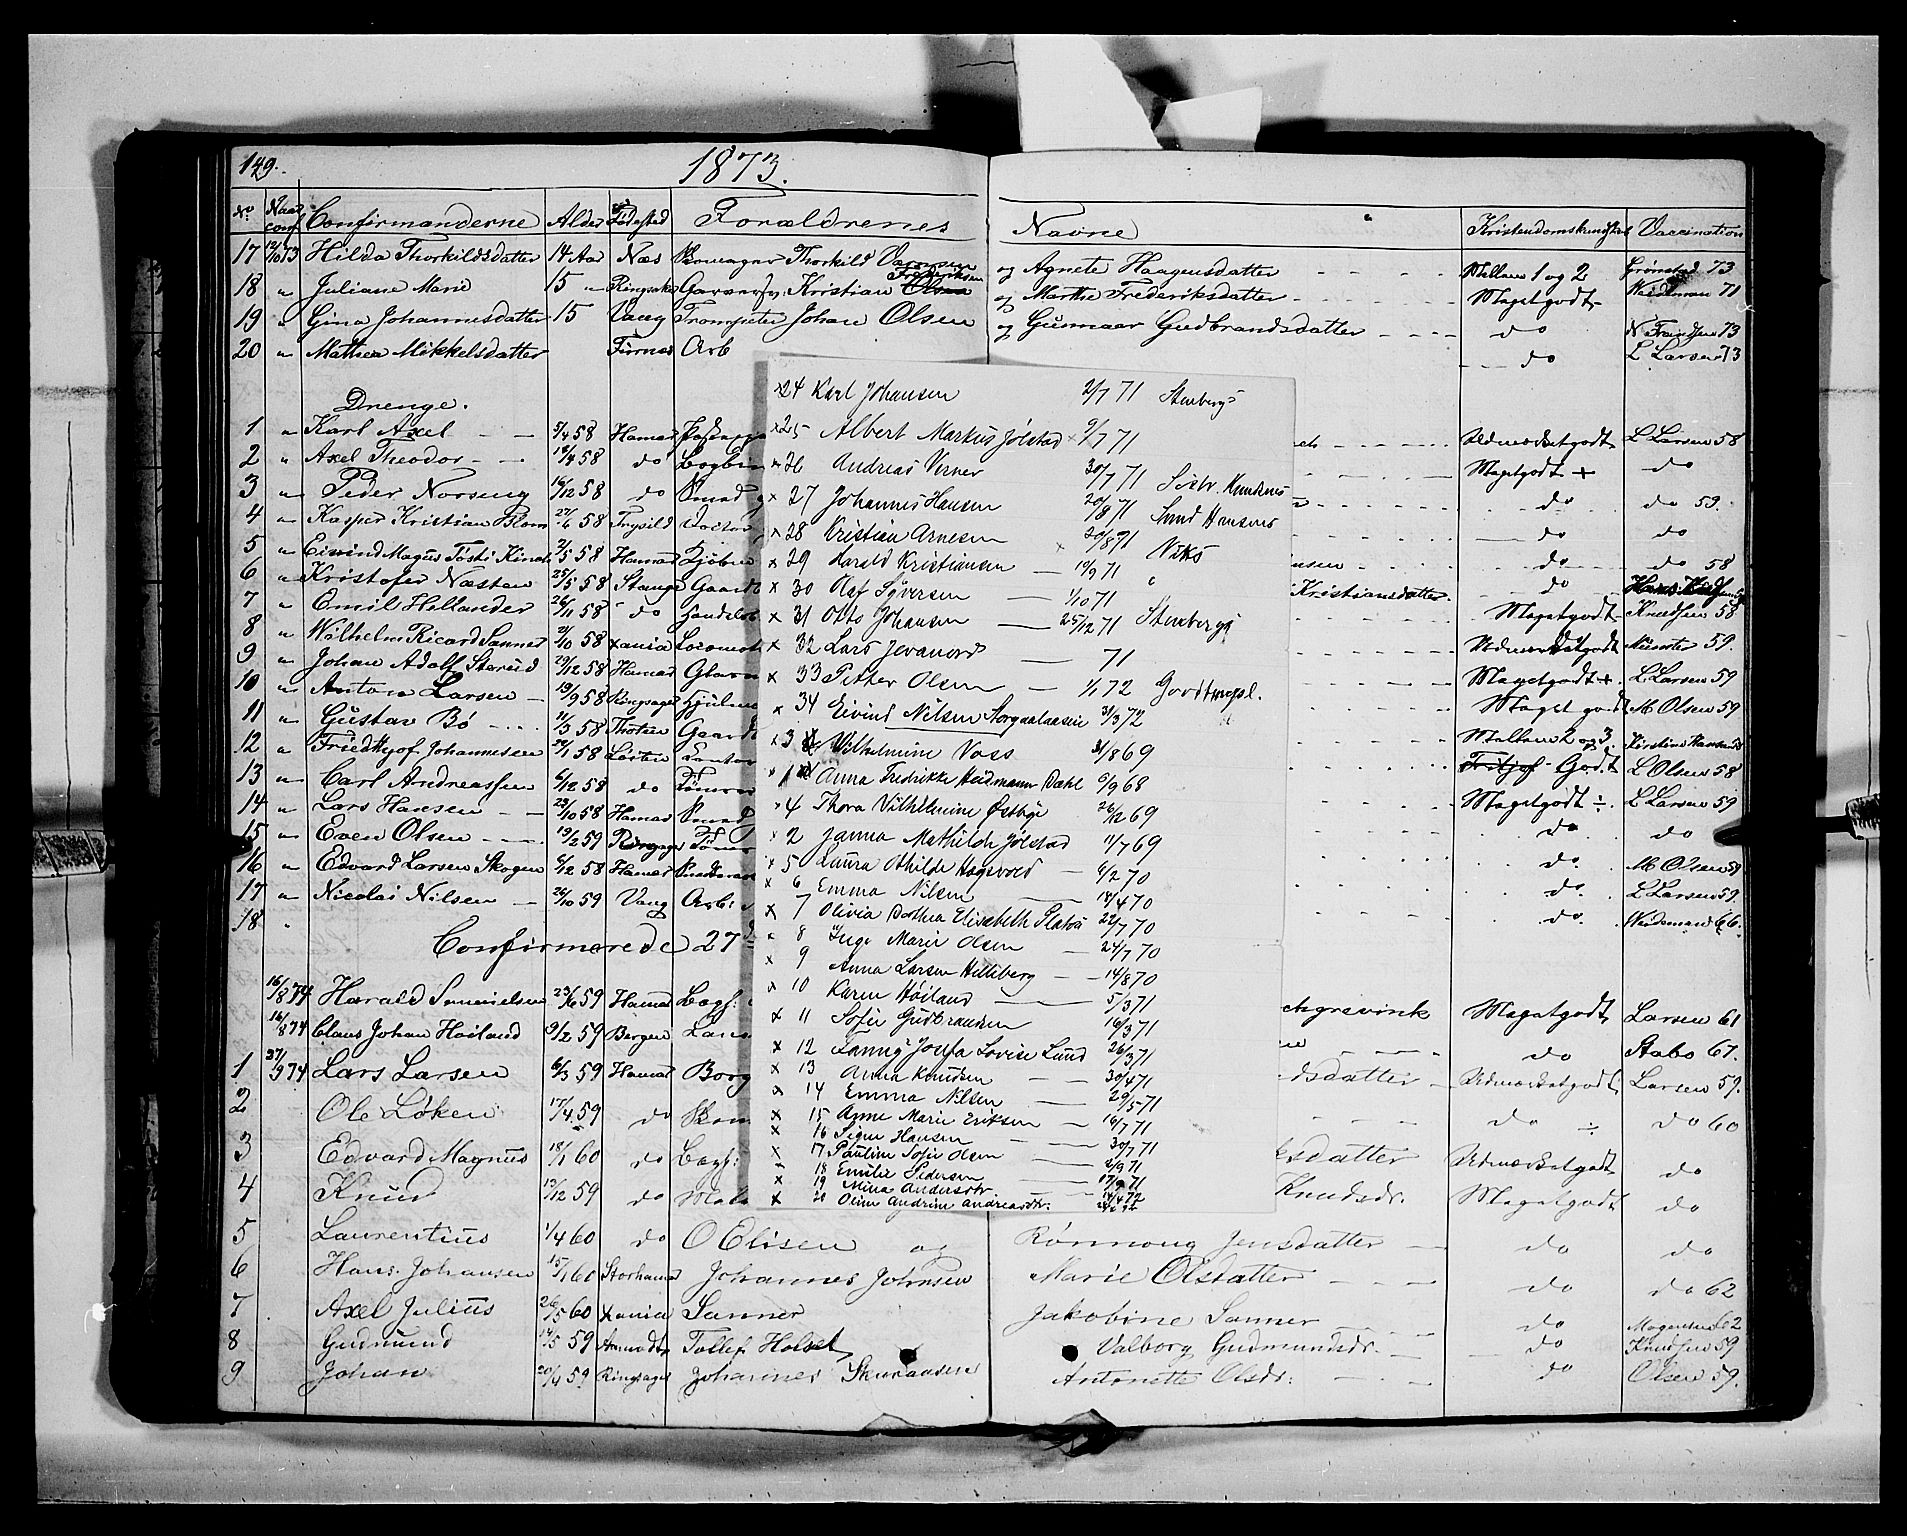 149.
1873.
No Naar conf. Confirmanderne Alder Fødested Forældrenes Navne Kristendomskundskab Vaccination
17 12/10 73 Hilda Thorkildsdatter 14 Aar Næs Thorkild og Agnete Haagensdatter Mellem 1 og 2 Grønstad 73
18 " Juliane Marie 15 " Ringsaker Garversv. Kristian Olsen Frederiksen og Marthe Frederiksdatter Meget godt Weideman 71
19 " Gina Johannesdatter 15 Vang Trompeter Johan Olsen og Gunnaar Gudbrandsdatter do N Frandsen 73
20 " Mathea Mikkelsdatter Furnes Arb do L Larsen 73
Drenge.
1 " Karl Axel 5/4 58 Hamar Udmærketgodt L Larsen 58
2 " Axel Theodor 19/4 58 do Bogbin Megetgodt + do
3 " Peder Norseng 16/12 58 do Smed do do 59.
4 " Kasper Kristian Blom 27/6 58 Trysil Doctor do do
5 " Eivind Magus Tosti 2/5 58 Hamar Kjøbm nsen do do 58
6 " Kristofer Næsten 25/5 58 Stange Gaardb Kristiansdatter do
7 " Emil Hollander 26/11 58 do Handelsb Megetgodt Knudsen 58
8 " Wilhelm Ricard Sanner 2/10 58 Xania Locomot Udmærketgodt 59.
9 " Johan Adolf 29/12 58 Hamar Glarm Megetgodt + L Larsen 59
10 " Anton Larsen 19/9 58 Ringsager Hjulm Meget godt M Olsen 59
11 " Gustav Bø 11/3 58 Thoten Gaardb Mellem 2 og 3. Kirstine Hansen
12 " Friedthjof Johannesen 29/1 58 Løiten Kantor Fritjof Godt L Olsen 58
13 " Carl Andreassen 6/12 58 do Tømm Megetgodt ÷ L Larsen 59
14 " Lars Hansen 23/10 58 Hamar Smed do do
15 " Even Olsen 19/2 59 Ringsager Tøm do M Olsen 59
16 " Edvard Larsen Skogen 6/12 58 Hamar do L Larsen 59.
17 " Nicolai Nilsen 26/10 59 Vang Arb: do Weideman 66.
18 "
Confirmerede 27de
16/8 74 Harald Samuelsen 23/6 59 Hamar Bogh: chgrevink Megetgodt Larsen 61
16/8 74 Claus Johan Hoiland 9/2 59 Bergen Lans do Stabo 67.
1 27/9 74 Lars Larsen 6/3 59 Hamar Borg dsdatter Udmærketgodt Larsen 59.
2 Ole Løken 17/4 59 do Skom do ÷ do 60
3 Edvard Magnus 18/1 60 do Bogh: sdatter Udmærketgodt do
4 Knud 13/12 59 do Male Knudsdr. Megetgodt do
5 Laurentius 1/4 60 do O Elisen og Rønnoug Jensdatter do do
6 Hans Johansen 15/1 60 Storhamar Johannes Johnsen Marie Olsdatter do do 62
7 Axel Julius 26/5 60 Xania Sanner Jakobine Sanner do 62
8 Gudmund 14/5 59 Tollef Holset Valborg Gudmundsdr. do Knudsen 59
9 Johan 20/4 59 Ringsager Johannes Skuraasen Antonette Olsdr: do Olsen 59.
x 24 Karl Johansen 2/7 71 Stenbergs
x 25 Albert Markus Jølstad x 9/7 71
x 26 Andreas Verner 30/7 71 Sistr. Knudsens
x 27 Johannes Hansen 20/8 71 Smed Hansens
x 28 Kristian Arnesen 20/8 71
x 29 Harald Kristiansen 10/9 71
x 30 Olaf Syversen 1/10 71
x 31 Otto Johansen 25/12 71 Stenbergs
x 32 Lars Jevanord 71
x 33 Petter Olsen 1/1 72 Goodtempl.
x 34 Eivind Nilsen Storgaalaasen 31/3 72
x 3 Vilhelmine Voss 31/8 69
x 1 Anna Fredrikke Heidmann Dahl 6/9 68
x 4 Thora Vilhelmine Østbye 26/12 69
x 2 Janna Mathilde Jølstad 11/7 69
x 5 Laura Othilde Hagsvold 6/2 70
x 6 Emma Nilsen 18/4 70
x 7 Olivia Dorthea Elisabeth Platou 22/7 70
x 8 Inga Marie Olsen 24/7 70
x 9 Anna Larsen Helleberg 14/8 70
x 10 Karen Høiland 5/3 71
x 11 Sofie Gudbrandsen 16/3 71
x 12 Fanny Josefa Lovise Lund 26/3 71
x 13 Anna Knudsen 30/4 71
x 14 Emma Nilsen 29/5 71
x 15 Anne Marie Eriksen 16/7 71
x 16 Signe Hansen 30/7 71
x 17 Pauline Sofie Olsen 2/9 71
x 18 Emilie Pedersen 17/9 71
x 19 Mina Andersdtr. 14/4 72
x 20 Oline Andrine Andreasdtr.